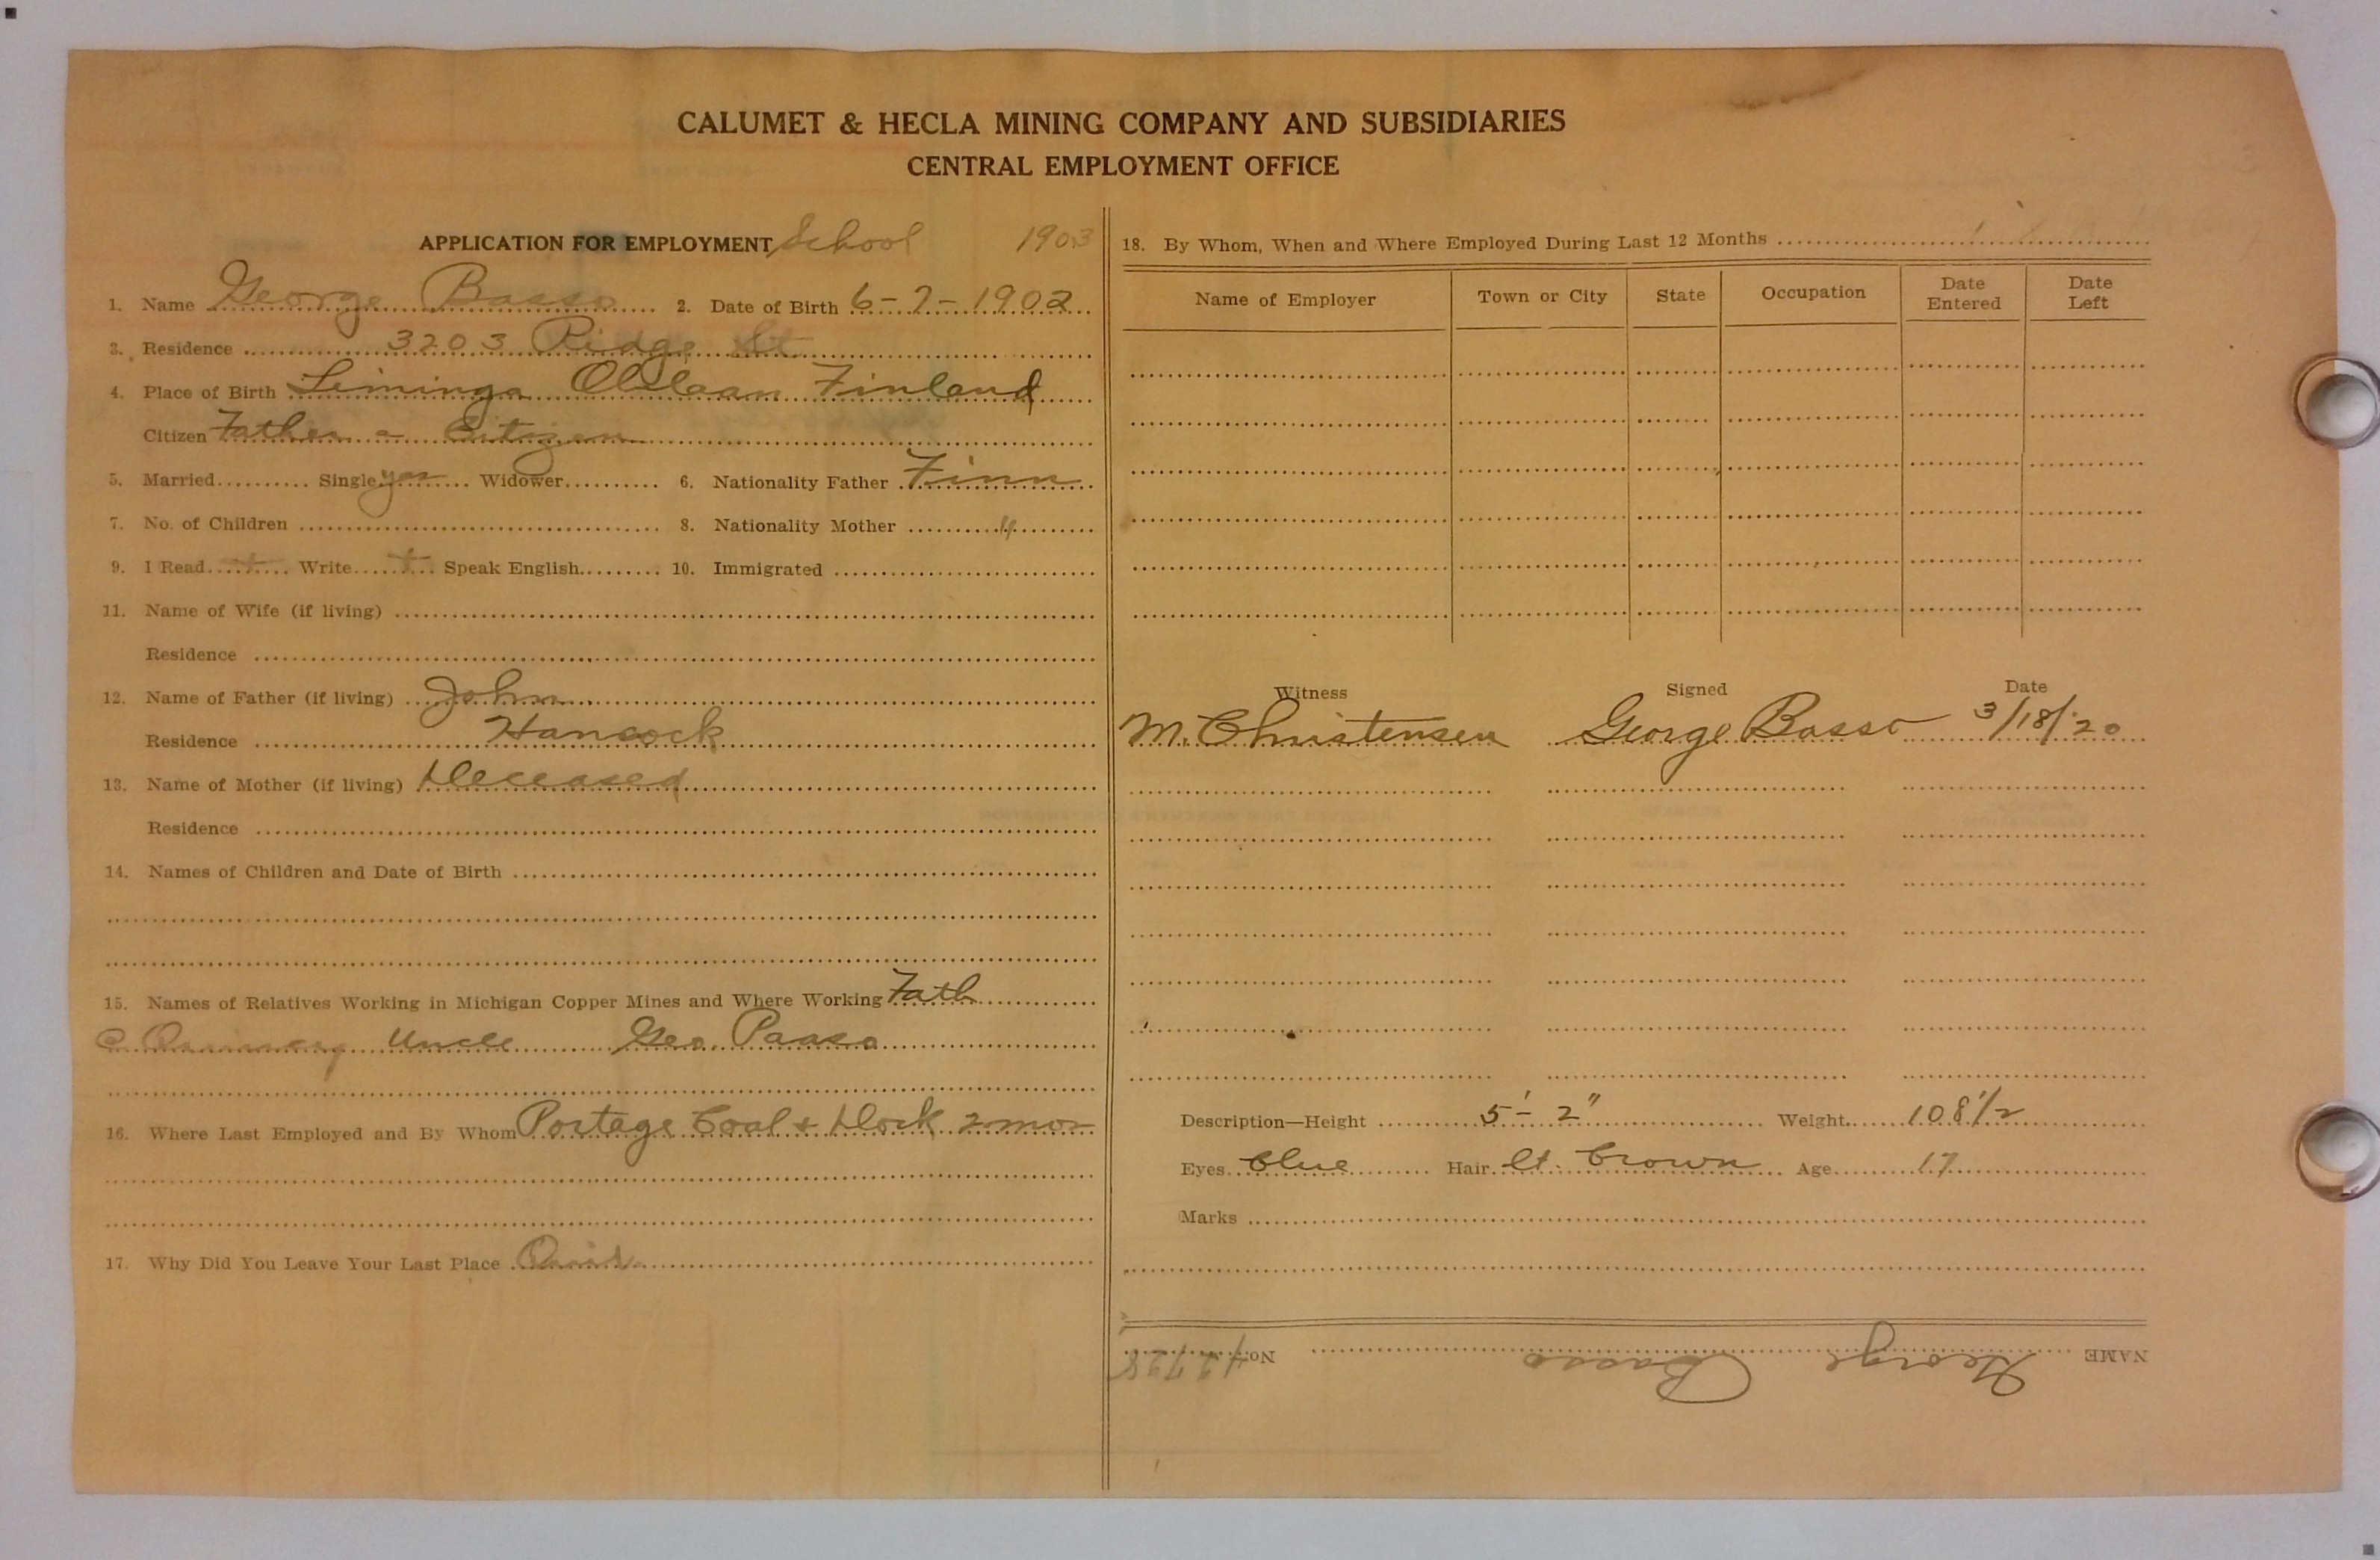 CALUMET & HECLA MINING COMPANY AND SUBSIDIARIES
CENTRAL EMPLOYMENT OFFICE
APPLICATION FOR EMPLOYMENT School 1903
1. Name George Basso 2. Date of Birth 6-7-1902
3. Residence 3203 Ridge St
4. Place of Birth Liminga Finland
Citizen Father a Citizen
5. Married Single yes Widower 6. Nationality Father Finn
7. No. of Children 8. Nationality Mother "
9. I Read + Write + Speak English 10. Immigrated
11. Name of Wife (if living)
Residence
12. Name of Father (if living) John
Residence Hancock
13. Name of Mother (if living) Deceased
Residence
14. Names of Children and Date of Birth
15. Names of Relatives Working in Michigan Copper Mines and Where Working Fath
@ Quincy Uncle Geo. Paaso
16. Where Last Employed and By Whom Portage Coal & Dock 2 mos
17. Why Did You Leave Your Last Place
18. By Whom, When and Where Employed During Last 12 Months
Name of Employer Town or City State Occupation Date Entered Date Left
Witness Signed Date
M. Christensen George Basso 3/18/20
Description—Height 5'-2" Weight 108 1/2
Eyes blue Hair lt. brown Age 17
Marks
NAME George Basso No.